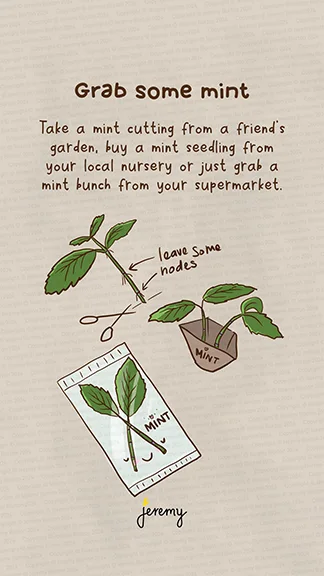 Grab some mint
Take a mint cutting from a friend's
garden, buy a mint seedling from
your local nursery or just grab a
mint bunch from your supermarket.
leave some
nodes
MINT
MINT
jeremy